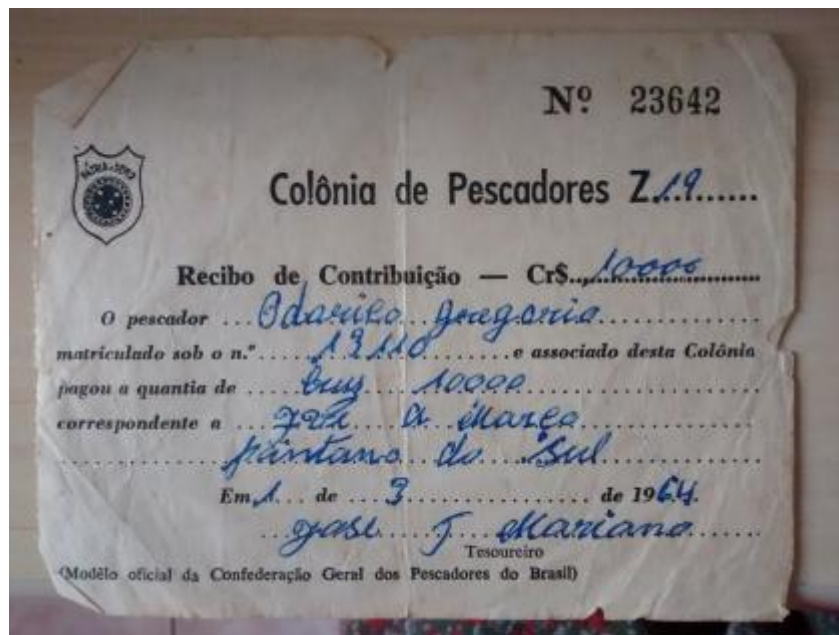 Nº 23642
Colônia de Pescadores Z.19......
Recibo de Contribuição — Cr$..10000..........
O pescador ... Odarico Gregorio..............
matriculado sob o n.º..... 19110 ........e associado desta Colônia
pagou a quantia de ..... Cruz 10000....................
correspondente a ....... a Março....................
Pantano do Sul
Em 1... de .... 3................. de 1964.
José J Mariano
Tesoureiro
(Modêlo oficial da Confederação Geral dos Pescadores do Brasil)